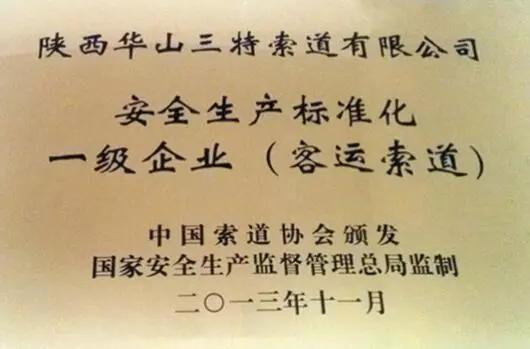 陕西华山三特索道有限公司
安全生产标准化
一级企业（客运索道）
中国索道协会颁发
国家安全生产监督管理总局监制
二〇一三年十一月